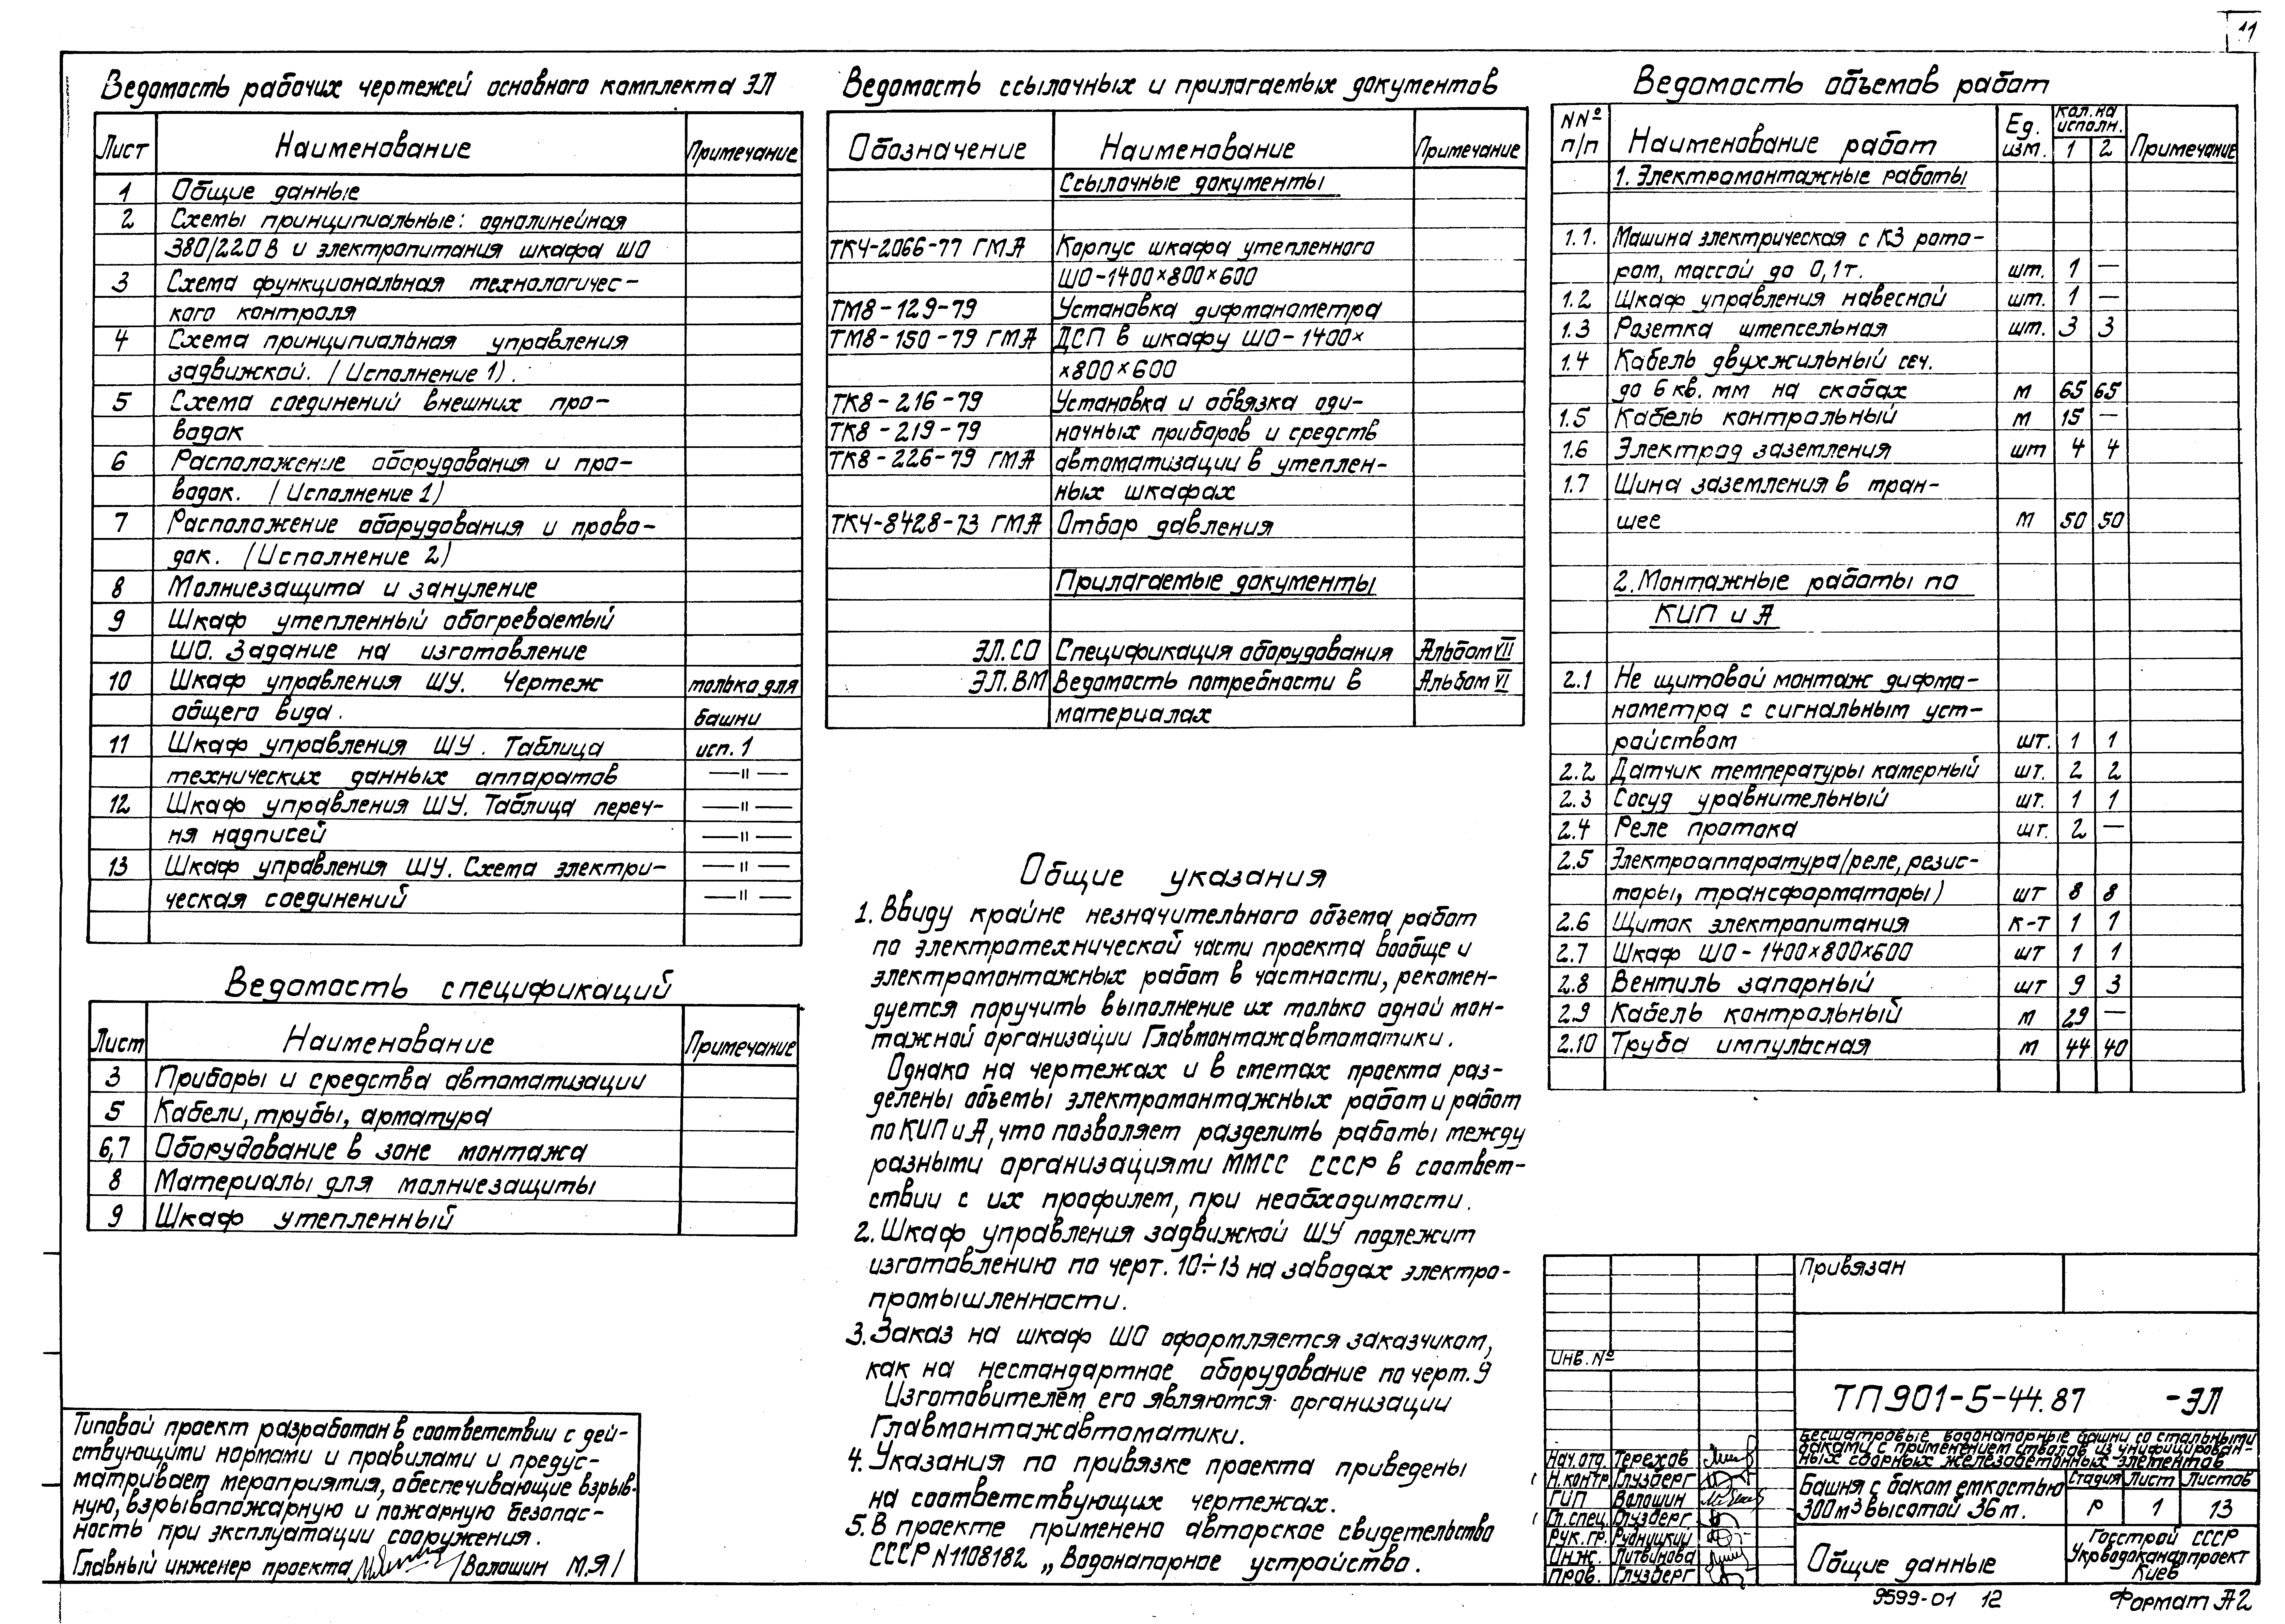 11
Ведомость рабочих чертежей основного комплекта ЭЛ
Лист Наименование Примечание
1 Общие данные
2 Схемы принципиальные: однолинейная
380/220 В и электропитания шкафа ШО
3 Схема функциональная технологичес-
кого контроля
4 Схема принципиальная управления
задвижкой. (Исполнение 1).
5 Схема соединений внешних про-
водок
6 Расположение оборудования и про-
водок. (Исполнение 1)
7 Расположение оборудования и прово-
док. (Исполнение 2)
8 Молниезащита и зануление
9 Шкаф утепленный обогреваемый
ШО. Задание на изготовление
10 Шкаф управления ШУ. Чертеж только для
общего вида. башни
11 Шкаф управления ШУ. Таблица исп. 1
технических данных аппаратов —"—
12 Шкаф управления ШУ. Таблица переч- —"—
ня надписей —"—
13 Шкаф управления ШУ. Схема электри- —"—
ческая соединений —"—
Ведомость спецификаций
Лист Наименование Примечание
3 Приборы и средства автоматизации
5 Кабели, трубы, арматура
6,7 Оборудование в зоне монтажа
8 Материалы для молниезащиты
9 Шкаф утепленный
Типовой проект разработан в соответствии с дей-
ствующими нормами и правилами и предус-
матривает мероприятия, обеспечивающие взрыв-
ную, взрывопожарную и пожарную безопас-
ность при эксплуатации сооружения.
Главный инженер проекта /Волошин М.Я/
Ведомость ссылочных и прилагаемых документов
Обозначение Наименование Примечание
Ссылочные документы
ТК4-2066-77 ГМА Корпус шкафа утепленного
ШО-1400×800×600
ТМ8-129-79 Установка дифманометра
ТМ8-150-79 ГМА ДСП в шкафу ШО-1400×
×800×600
ТК8-216-79 Установка и обвязка оди-
ТК8-219-79 ночных приборов и средств
ТК8-226-79 ГМА автоматизации в утеплен-
ных шкафах
ТК4-8428-73 ГМА Отбор давления
Прилагаемые документы
ЭЛ.СО Спецификация оборудования Альбом VII
ЭЛ.ВМ Ведомость потребности в Альбом VI
материалах
Общие указания
1. Ввиду крайне незначительного объема работ
по электротехнической части проекта вообще и
электромонтажных работ в частности, рекомен-
дуется поручить выполнение их только одной мон-
тажной организации Главмонтажавтоматики.
Однако на чертежах и в сметах проекта раз-
делены объемы электромонтажных работ и работ
по КИП и А, что позволяет разделить работы между
разными организациями ММСС СССР в соответ-
ствии с их профилем, при необходимости.
2. Шкаф управления задвижкой ШУ подлежит
изготовлению по черт. 10÷13 на заводах электро-
промышленности.
3. Заказ на шкаф ШО оформляется заказчиком,
как на нестандартное оборудование по черт. 9
Изготовителем его являются организации
Главмонтажавтоматики.
4. Указания по привязке проекта приведены
на соответствующих чертежах.
5. В проекте применено авторское свидетельство
СССР N1108182 „Водонапорное устройство.
Ведомость объемов работ
NNº п/п Наименование работ Ед. изм. Кол. на исполн. 1 2 Примечание
1. Электромонтажные работы
1.1. Машина электрическая с КЗ рото-
ром, массой до 0,1т. шт. 1 —
1.2 Шкаф управления навесной шт. 1 —
1.3 Розетка штепсельная шт. 3 3
1.4 Кабель двухжильный сеч.
до 6 кв. мм на скобах м 65 65
1.5 Кабель контрольный м 15 —
1.6 Электрод заземления шт 4 4
1.7 Шина заземления в тран-
шее м 50 50
2. Монтажные работы по
КИП и А
2.1 Не щитовой монтаж дифма-
нометра с сигнальным уст-
райством шт. 1 1
2.2 Датчик температуры камерный шт. 2 2
2.3 Сосуд уравнительный шт. 1 1
2.4 Реле протока шт. 2 —
2.5 Электроаппаратура (реле, резис-
торы, трансформаторы) шт 8 8
2.6 Щиток электропитания к-т 1 1
2.7 Шкаф ШО-1400×800×600 шт 1 1
2.8 Вентиль запорный шт 9 3
2.9 Кабель контрольный м 29 —
2.10 Труба импульсная м 44 40
Привязан
Инв. Nº
ТП 901-5-44.87 -ЭЛ
Бесшатровые водонапорные башни со стальными
баками с применением стволов из унифицирован-
ных сборных железобетонных элементов
Нач. отд. Терехов
Н. контр. Глузберг
ГИП Волошин
Гл. спец. Глузберг
Рук. гр. Рудницкий
Инж. Литвинова
Пров. Глузберг
Башня с баком емкостью
300 м³ высотой 36 м.
Стадия Лист Листов
Р 1 13
Общие данные
Госстрой СССР
Укрводоканалпроект
Киев
9599-01 12
Формат А2